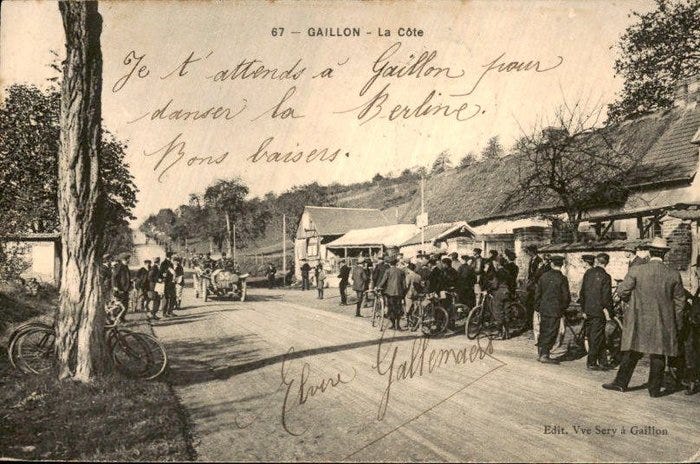 67 — GAILLON - La Côte
Je t'attends à Gaillon pour
danser la Berline.
Bons baisers.
Elvire Gallemaers
Edit. Vve Sery à Gaillon